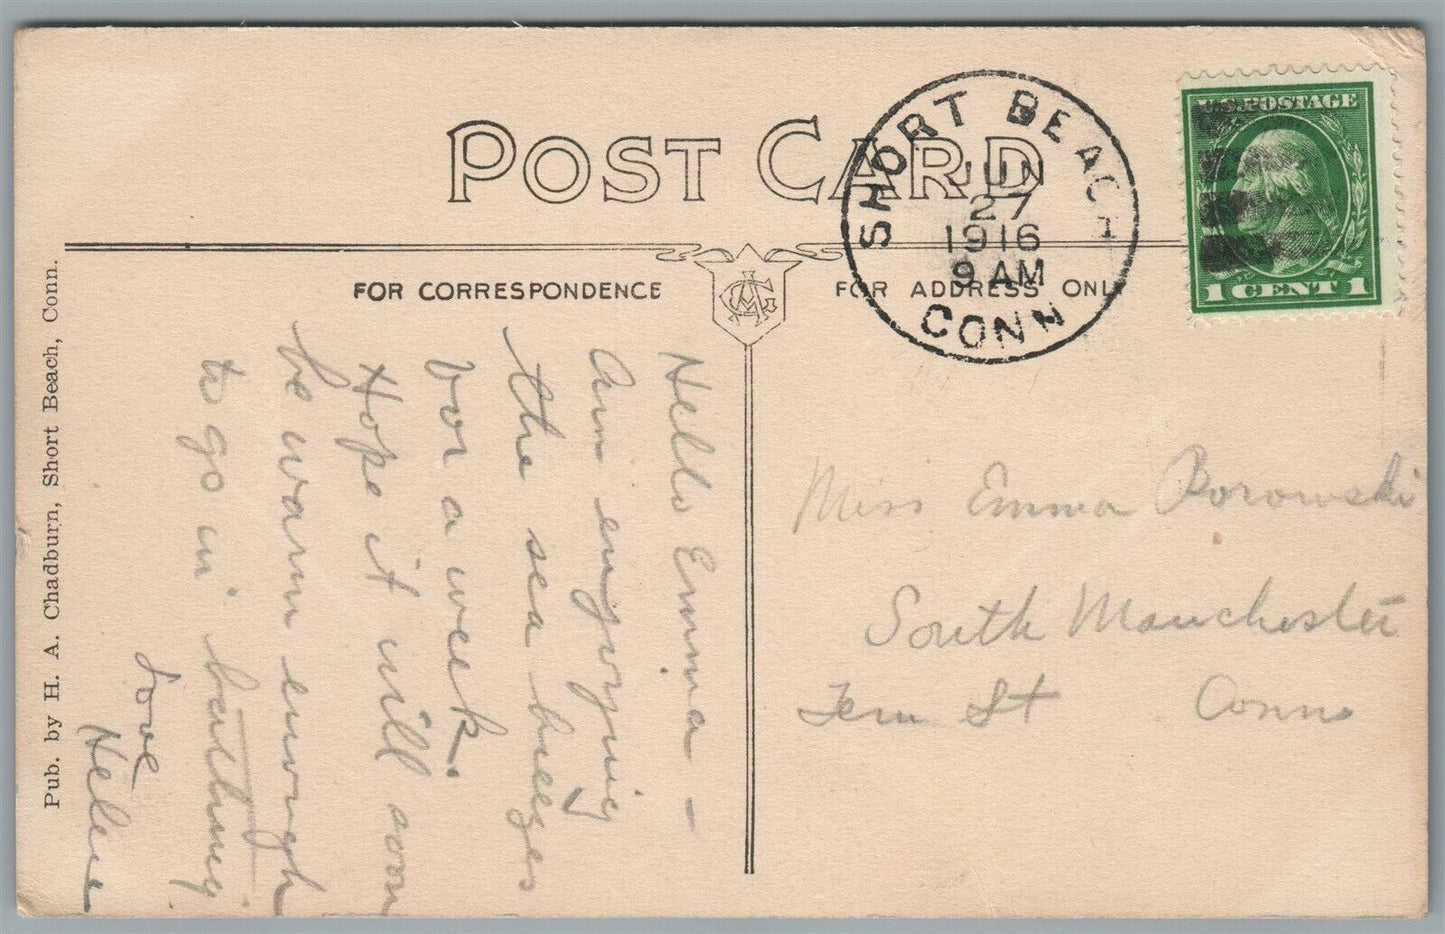 POST CARD
SHORT BEACH
JUN
27
1916
9 AM
CONN
U.S. POSTAGE
1 CENT 1
FOR CORRESPONDENCE
FOR ADDRESS ONLY
Hello Emma –
Am enjoying
the sea breezes
for a week.
Hope it will soon
be warm enough
to go in bathing
Love
Helen
Miss Emma Borowski
South Manchester
Fern St Conn
Pub. by H. A. Chadburn, Short Beach, Conn.